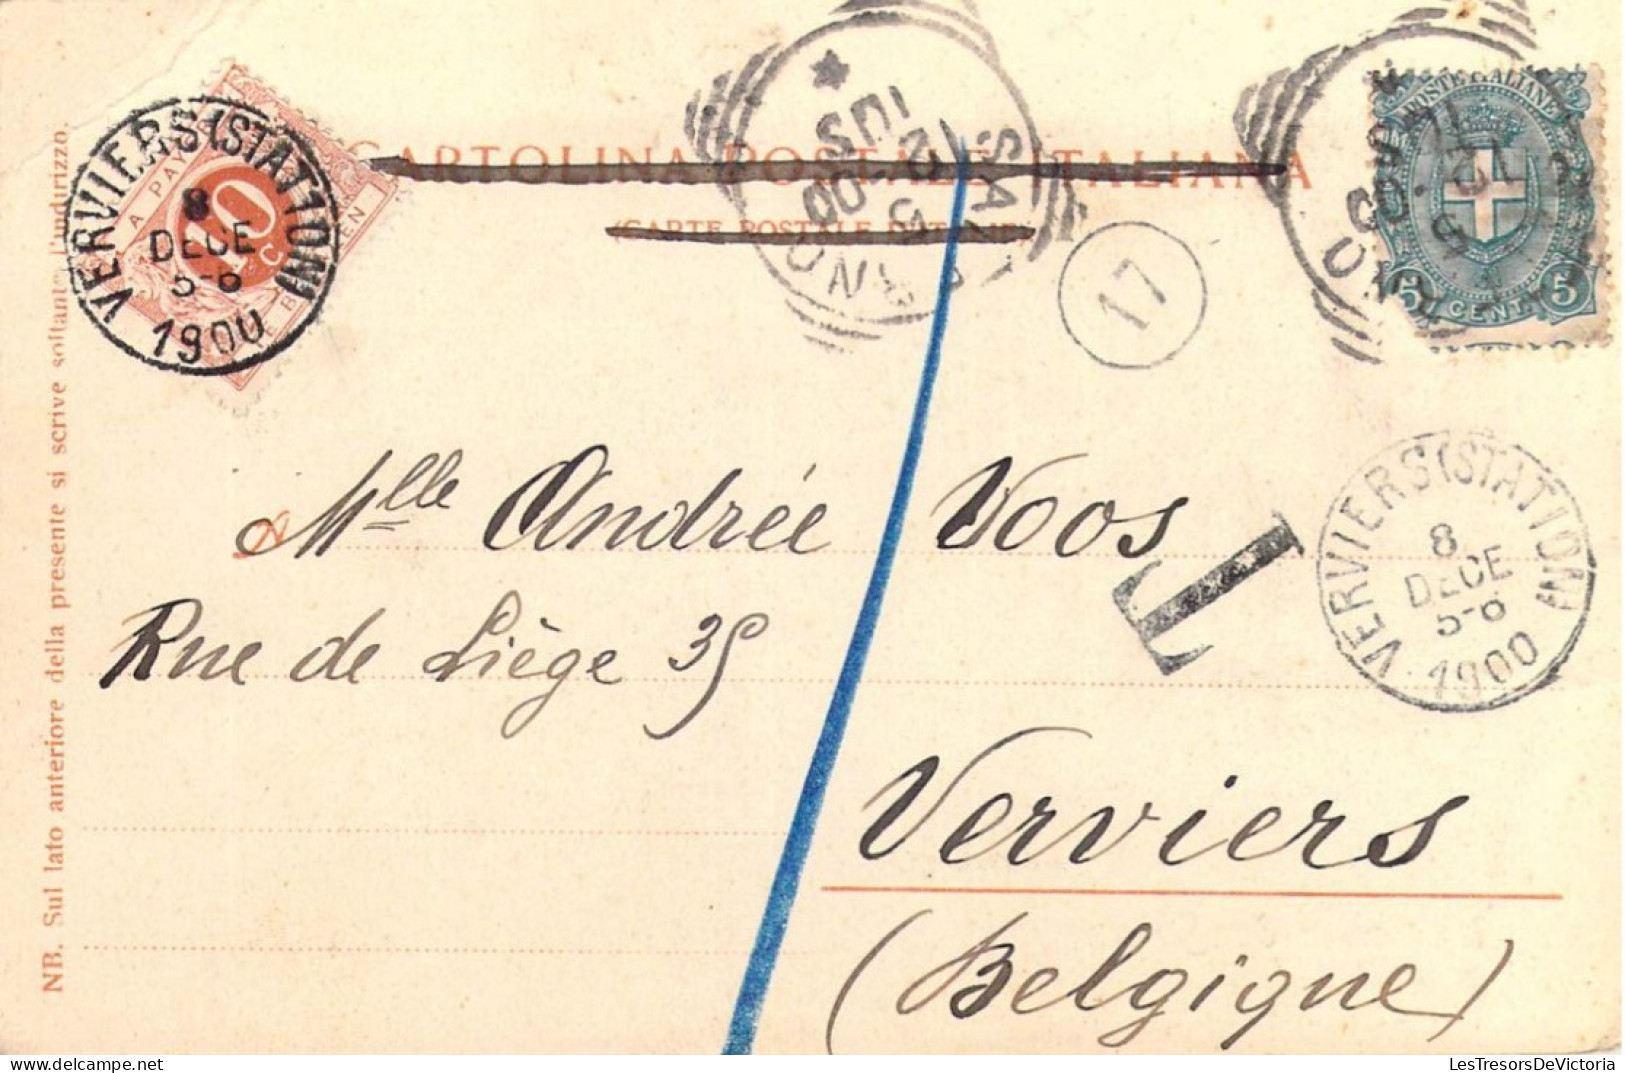 CARTOLINA POSTALE ITALIANA
(CARTE POSTALE D'ITALIE)
A PAYER
10
VERVIERS (STATION)
8
DECE
5-6
1900
POSTE ITALIANE
5 CENT. 5
12
00
17
T
VERVIERS (STATION)
8
DECE
5-6
1900
Mlle Andrée Voos
Rue de Liège 35
Verviers
(Belgique)
NB. Sul lato anteriore della presente si scrive soltanto l'indirizzo.
LesTresorsDeVictoria